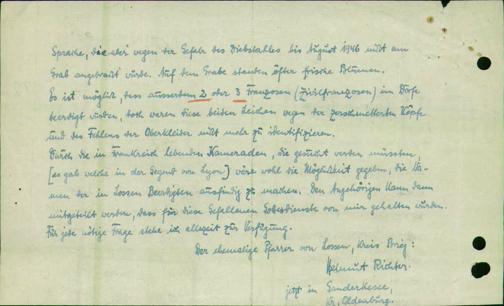 Sprache, die aber wegen der Gefahr des Diebstahles bis August 1946 nicht am
Grab angebracht wurde. Auf dem Grabe standen öfter frische Blumen.
Es ist möglich, dass ausserdem 2 oder 3 Franzosen (Zivilfranzosen) im Dorfe
beerdigt wurden, doch waren diese beiden Leichen wegen der zerschmetterten Köpfe
und des Fehlens der Oberkleider nicht mehr zu identifizieren.
Durch die in Frankreich lebenden Kameraden, die gesucht werden müssten,
(es gab welche in der Gegend von Lyon) wäre wohl die Möglichkeit gegeben, die Na-
men der in Lossen Beerdigten ausfindig zu machen. Den Angehörigen kann dann
mitgeteilt werden, dass für diese Gefallenen Gottesdienste von mir gehalten wurden.
Für jede nötige Frage stehe ich allezeit zur Verfügung.
Der ehemalige Pfarrer von Lossen, Kreis Brieg:
Helmut Richter.
jetzt in Ganderkesee,
Kr. Oldenburg.